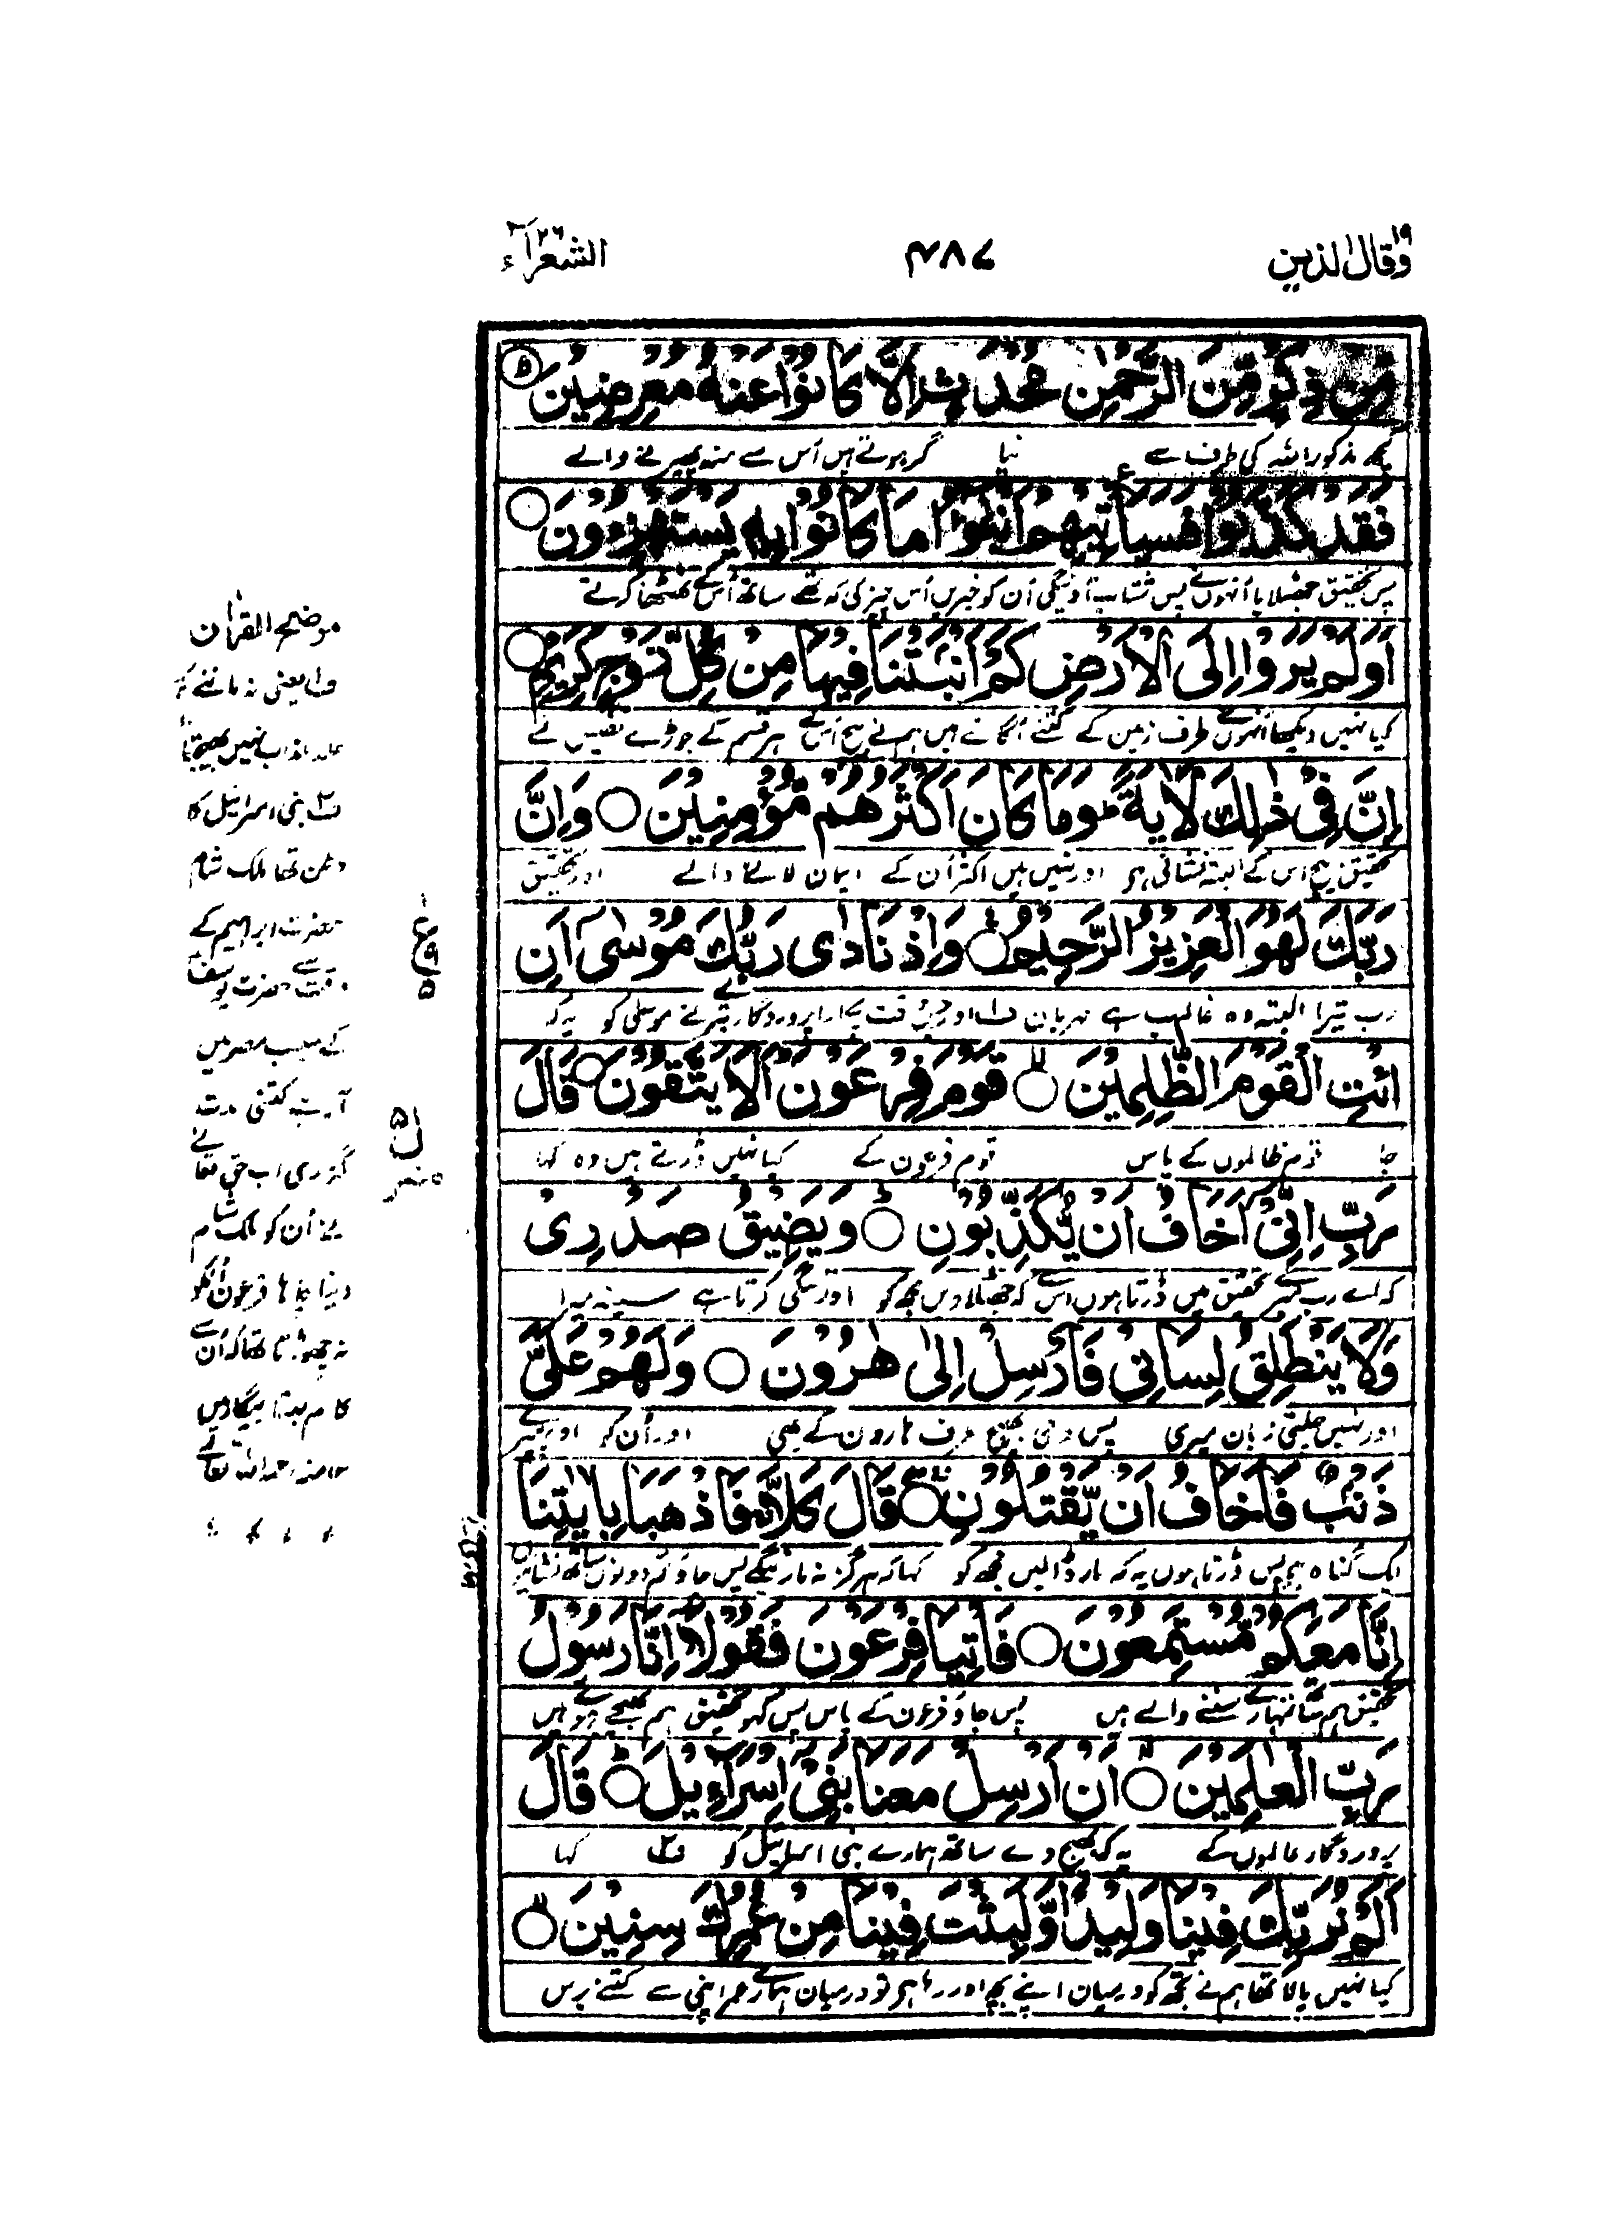 وقال الذین ۱۹
۴۸۷
الشعرآء ۲۶
مِّنْ ذِكْرٍ مِّنَ الرَّحْمٰنِ مُحْدَثٍ اِلَّا كَانُوْا عَنْهُ مُعْرِضِيْنَ ۵
کچھ مذکور اللہ کی طرف سے نیا مگر ہوتے ہیں اُس سے منہ پھیرنے والے
فَقَدْ كَذَّبُوْا فَسَيَاْتِيْهِمْ اَنْۢبٰٓؤُا مَا كَانُوْا بِهٖ يَسْتَهْزِءُوْنَ ○
پس تحقیق جھٹلایا اُنہوں نے پس شتاب آوینگی اُن کو خبریں اُس چیز کی کہ تھے ساتھ اُس کے ٹھٹھا کرتے
اَوَلَمْ يَرَوْا اِلَى الْاَرْضِ كَمْ اَنْۢبَتْنَا فِيْهَا مِنْ كُلِّ زَوْجٍ كَرِيْمٍ ○
کیا نہیں دیکھا اُنہوں نے طرف زمین کے کتنے اُگائے ہیں ہم نے بیچ اُس کے ہر قسم کے جوڑے نفیس سے
اِنَّ فِيْ ذٰلِكَ لَاٰيَةً ؕ وَمَا كَانَ اَكْثَرُهُمْ مُّؤْمِنِيْنَ ○ وَاِنَّ
تحقیق بیچ اس کے البتہ نشانی ہی اور نہیں ہیں اکثر اُن کے ایمان لانے والے اور تحقیق
رَبَّكَ لَهُوَ الْعَزِيْزُ الرَّحِيْمُ ○ وَاِذْ نَادٰى رَبُّكَ مُوْسٰٓى اَنِ
رب تیرا البتہ وہ غالب ہے مہربان ف۱ اور جس وقت پکارا پروردگار تیرے نے موسیٰ کو یہ کہ
ائْتِ الْقَوْمَ الظّٰلِمِيْنَ ○ قَوْمَ فِرْعَوْنَ ؕ اَلَا يَتَّقُوْنَ ○ قَالَ
جا قوم ظالموں کے پاس قوم فرعون کے کیا نہیں ڈرتے ہیں وہ کہا
رَبِّ اِنِّيْٓ اَخَافُ اَنْ يُّكَذِّبُوْنِ ○ وَيَضِيْقُ صَدْرِيْ
کہ اے رب میرے تحقیق میں ڈرتا ہوں اس سے کہ جھٹلاویں مجھ کو اور تنگی کرتا ہے سینہ میرا
وَلَا يَنْطَلِقُ لِسَانِيْ فَاَرْسِلْ اِلٰى هٰرُوْنَ ○ وَلَهُمْ عَلَيَّ
اور نہیں چلتی زبان میری پس وحی بھیج طرف ہارون کے بھی اور اُن کو اوپر میرے
ذَنْۢبٌ فَاَخَافُ اَنْ يَّقْتُلُوْنِ ○ قَالَ كَلَّا ۚ فَاذْهَبَا بِاٰيٰتِنَا
ایک گناہ ہی پس ڈرتا ہوں یہ کہ مار ڈالیں مجھ کو کہا کہ ہرگز نہ مارینگے پس جاؤ تم دونوں ساتھ نشانیوں
اِنَّا مَعَكُمْ مُّسْتَمِعُوْنَ ○ فَاْتِيَا فِرْعَوْنَ فَقُوْلَآ اِنَّا رَسُوْلُ
تحقیق ہم ساتھ تمہارے سننے والے ہیں پس جاؤ فرعون کے پاس پس کہو تحقیق ہم بھیجے ہوئے ہیں
رَبِّ الْعٰلَمِيْنَ ○ اَنْ اَرْسِلْ مَعَنَا بَنِيْٓ اِسْرَآءِيْلَ ○ قَالَ
پروردگار عالموں کے یہ کہ بھیج دے ساتھ ہمارے بنی اسرائیل کو ف۲ کہا
اَلَمْ نُرَبِّكَ فِيْنَا وَلِيْدًا وَّلَبِثْتَ فِيْنَا مِنْ عُمُرِكَ سِنِيْنَ ○
کیا نہیں پالا تھا ہم نے تجھ کو درمیان اپنے بچہ اور رہا ہی تو درمیان ہمارے عمر اپنی سے کتنے برس
موضح القرآن
ف۱ یعنی نہ ماننے پر
جلد عذاب نہیں بھیجتا
ف۲ بنی اسرائیل کا
وطن تھا ملک شام
حضرت ابراہیم کے
وقت سے حضرت یوسف
کے سبب مصر میں
آرہے کتنی مدت
گزری اب حق تعالےٰ
نے اُن کو ملک شام
دینا چاہا فرعون اُنکو
نہ چھوڑتا تھا کہ اُن سے
کام بیتا بیگار میں
رحمہ اللہ تعالے
ع
۵
منزل ۵